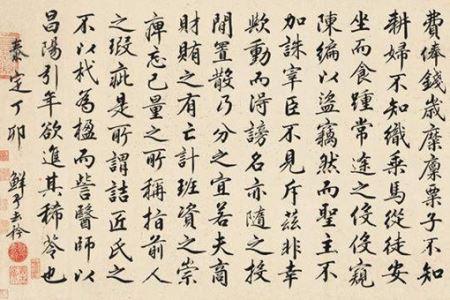 費俸錢歲糜廩粟子不知
耕婦不知織乘馬從徒安
坐而食踵常途之促促窺
陳編以盜竊然而聖主不
加誅宰臣不見斥茲非幸
歟動而得謗名亦隨之投
閒置散乃分之宜若夫商
財賄之有亡計班資之崇
痺忘己量之所稱指前人
之瑕疵是所謂詰匠氏之
不以杙為楹而訾醫師以
昌陽引年欲進其稀苓也
泰定丁卯 鮮于去矜